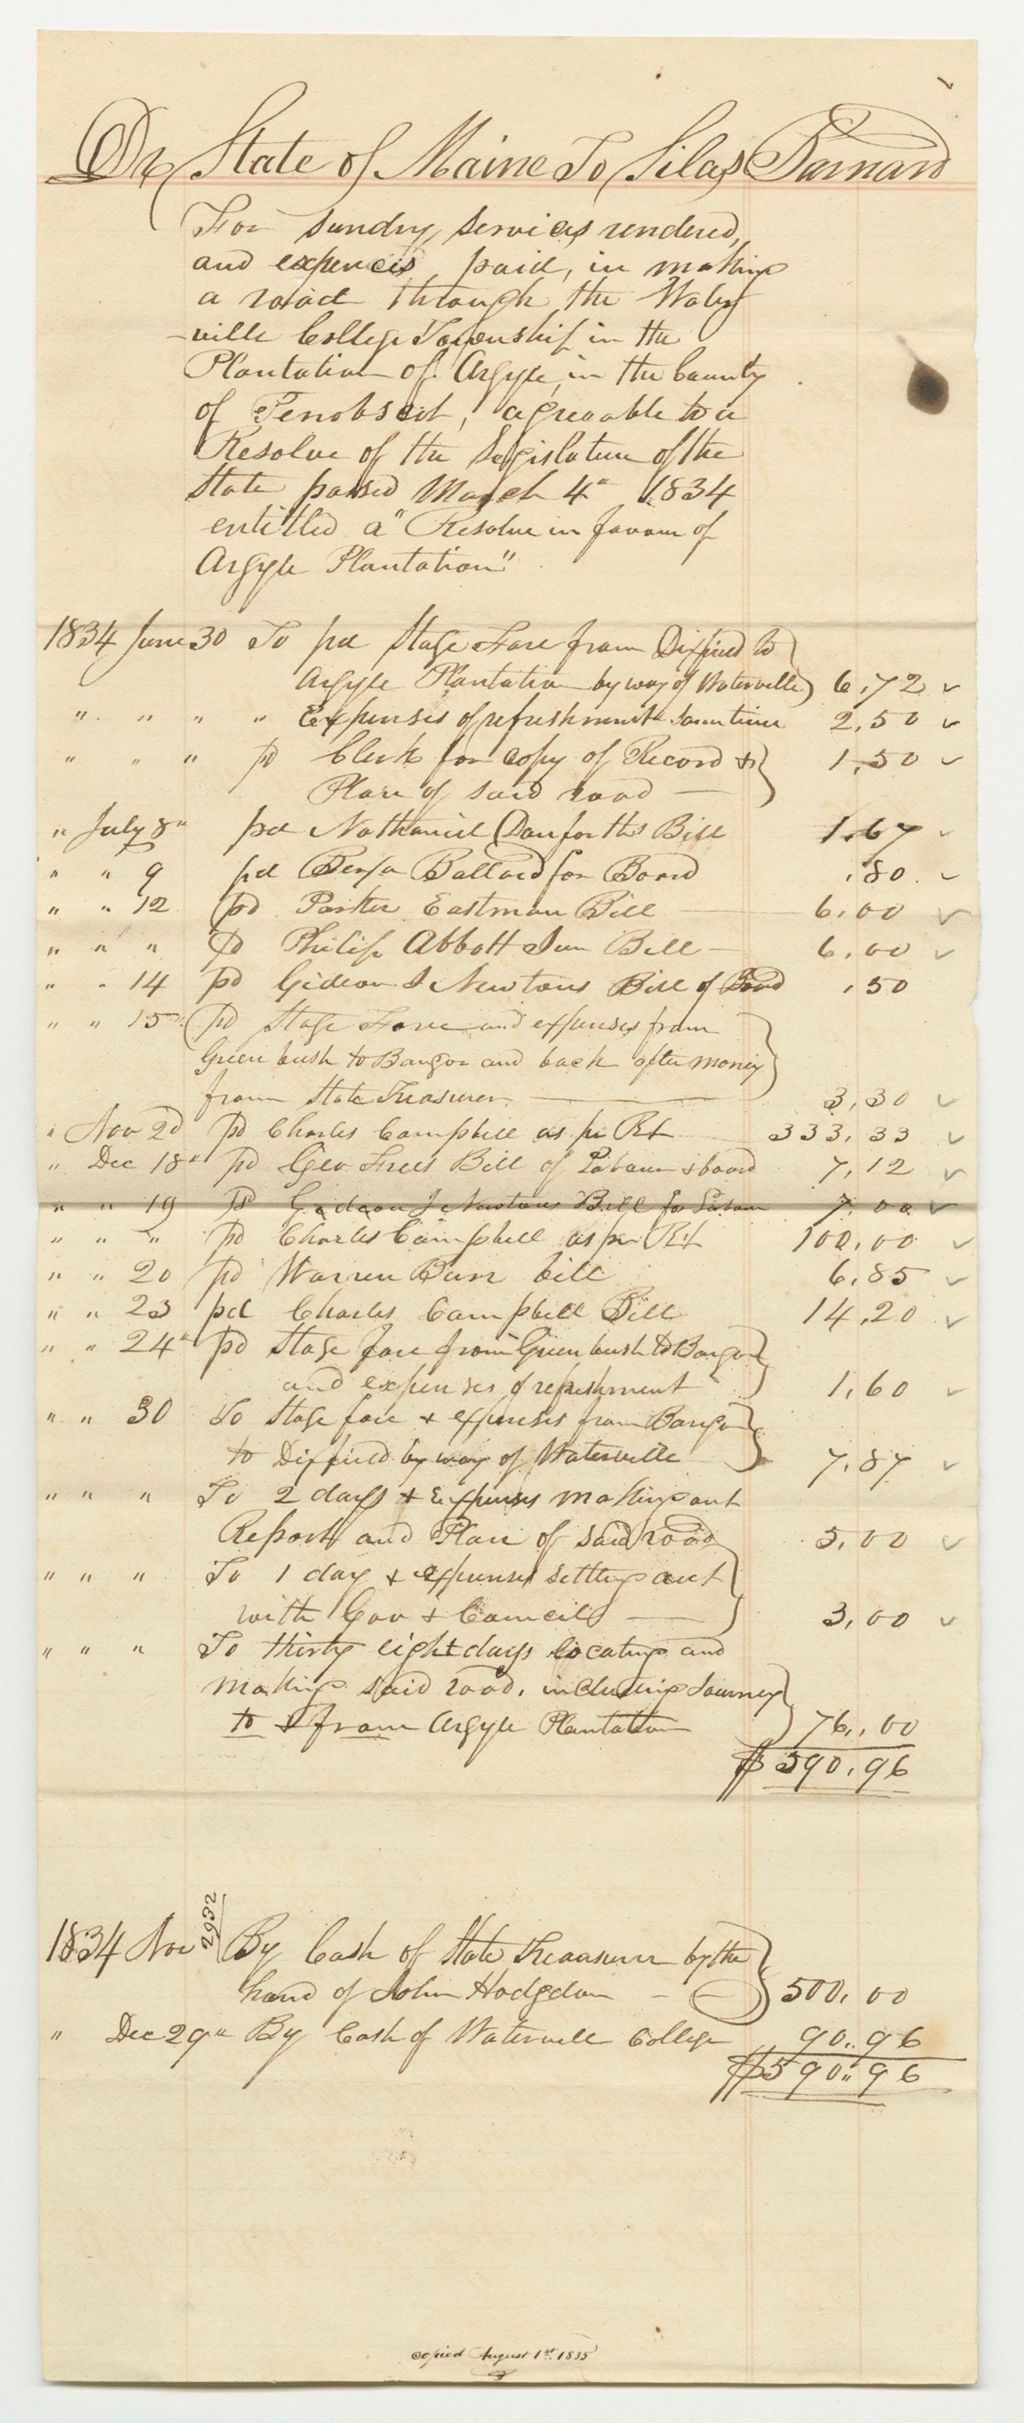 Dr State of Maine To Silas Barnard
For sundry services rendered,
and expences paid, in making
a road through the Water
-ville College Township in the
Plantation of Argyle, in the County
of Penobscot, agreeable to a
Resolve of the Legislature of the
State passed March 4th 1834
entitled a "Resolve in favour of
Argyle Plantation"
1834 June 30 To pd Stage Fare from Dixfield to
Argyle Plantation by way of Waterville 6,72
" " " " Expenses of refreshments same time 2,50
" " " pd Clerk for copy of Record &
Plan of said road — 1,50
" July 8th pd Nathaniel Danforths Bill 1,67
" " 9 pd Benja Ballard for Board ,80
" " 12 pd Parker Eastman Bill 6,00
" " " pd Philip Abbott Jun Bill 6,00
" " 14 pd Gideon J Newtons Bill of Board ,50
" " 15 pd Stage Fare and expenses from
Greenbush to Bangor and back after money
from State Treasurer — 3,30
" Nov 20 pd Charles Campbell as pr Rt 333,33
" Dec 18th pd Geo Frees Bill of Labour & board 7,12
" " 19 pd Gideon J Newtons Bill for Labour 7,00
" " " pd Charles Campbell as pr Rt 100,00
" " 20 pd Warren Burr bill 6,85
" " 23 pd Charles Campbell Bill 14,20
" " 24th pd Stage fare from Greenbush to Bangor
and expenses of refreshment 1,60
" " 30 To Stage fare & expenses from Bangor
to Dixfield by way of Waterville 7,87
" " " To 2 days & Expenses making out
Report and Plan of said road 5,00
" " " To 1 day & expenses settling acct
with Gov & Council — 3,00
" " " To thirty eight days locating and
making said road, including Journey
to & from Argyle Plantation 76,00
$590,96
2932
1834 Nov By Cash of State Treasurer by the
hand of John Hodgdon — 500,00
" Dec 29th By Cash of Waterville College 90,,96
$590,,96
copied August 1st 1835